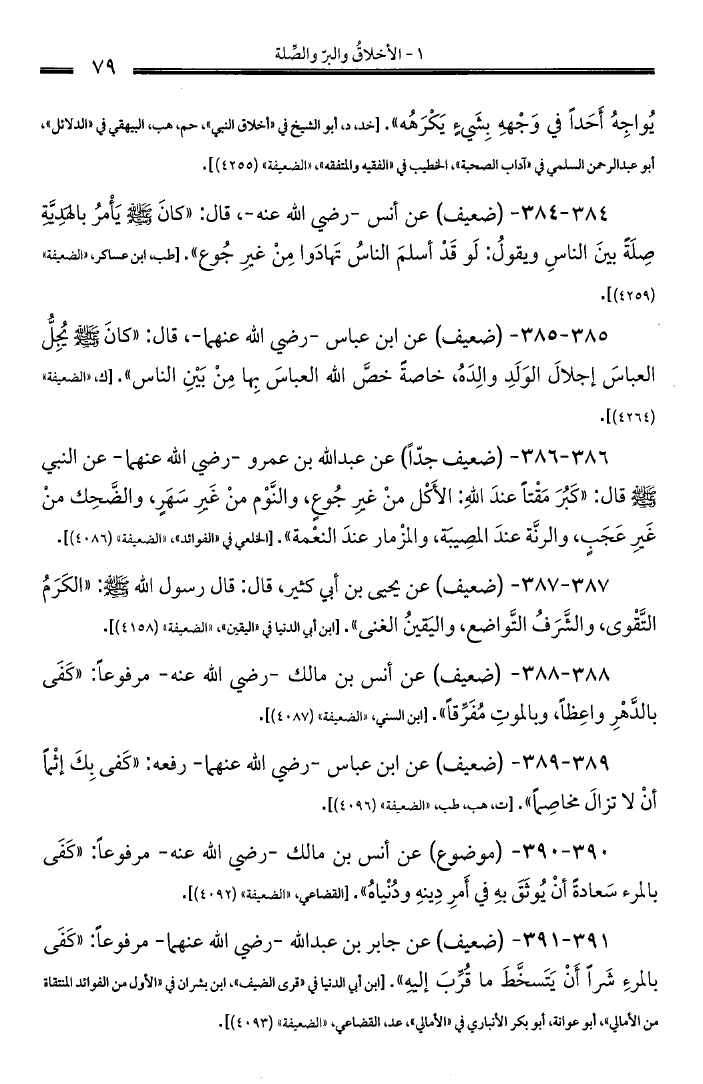 ١ - الأخلاقُ والبرّ والصِّلة
٧٩
يُواجِهُ أَحَداً في وَجْههِ بِشَيءٍ يَكْرَهُه». [خد، د، أبو الشيخ في «أخلاق النبي»، حم، هب، البيهقي في «الدلائل»،
أبو عبدالرحمن السلمي في «آداب الصحبة»، الخطيب في «الفقيه والمتفقه»، «الضعيفة» (٤٢٥٥)].
٣٨٤-٣٨٤- (ضعيف) عن أنس -رضي الله عنه-، قال: «كانَ ﷺ يَأْمرُ بالهَديَّةِ
صِلَةً بينَ الناسِ ويقولُ: لَو قَدْ أسلمَ الناسُ تَهادَوا مِنْ غيرِ جُوع». [طب، ابن عساكر، «الضعيفة»
(٤٢٥٩)].
٣٨٥-٣٨٥- (ضعيف) عن ابن عباس -رضي الله عنهما-، قال: «كانَ ﷺ يُجِلُّ
العباسَ إجلالَ الوَلَدِ والِدَهُ، خاصةً خصَّ الله العباسَ بِها مِنْ بَيْنِ الناس». [ك، «الضعيفة»
(٤٢٦٤)].
٣٨٦-٣٨٦- (ضعيف جدّاً) عن عبدالله بن عمرو -رضي الله عنهما- عن النبي
ﷺ قال: «كَبُرَ مَقْتاً عندَ اللهِ: الأَكْل منْ غيرِ جُوعٍ، والنَّوْم منْ غَيرِ سَهَرٍ، والضَّحِك منْ
غَيرِ عَجَبٍ، والرنَّة عندَ المصِيبَة، والمزْمار عندَ النعْمة». [الخلعي في «الفوائد»، «الضعيفة» (٤٠٨٦)].
٣٨٧-٣٨٧- (ضعيف) عن يحيى بن أبي كثير، قال: قال رسول الله ﷺ: «الكَرَمُ
التَّقْوى، والشَّرَفُ التَّواضع، واليَقينُ الغنى». [ابن أبي الدنيا في «اليقين»، «الضعيفة» (٤١٥٨)].
٣٨٨-٣٨٨- (ضعيف) عن أنس بن مالك -رضي الله عنه- مرفوعاً: «كَفَى
بالدَّهْرِ واعِظاً، وبالموتِ مُفَرِّقاً». [ابن السني، «الضعيفة» (٤٠٨٧)].
٣٨٩-٣٨٩- (ضعيف) عن ابن عباس -رضي الله عنهما- رفعه: «كَفى بِكَ إثْماً
أنْ لا تزالَ مخاصِماً». [ت، هب، طب، «الضعيفة» (٤٠٩٦)].
٣٩٠-٣٩٠- (موضوع) عن أنس بن مالك -رضي الله عنه- مرفوعاً: «كَفَى
بالمرء سَعادةً أنْ يُوثَقَ بهِ في أَمرِ دِينهِ ودُنْياهُ». [القضاعي، «الضعيفة» (٤٠٩٢)].
٣٩١-٣٩١- (ضعيف) عن جابر بن عبدالله -رضي الله عنهما- مرفوعاً: «كَفَى
بالمرءِ شَراً أَنْ يَتَسخَّطَ ما قُرِّبَ إليهِ». [ابن أبي الدنيا في «قرى الضيف»، ابن بشران في «الأول من الفوائد المنتقاة
من الأمالي»، أبو عوانة، أبو بكر الأنباري في «الأمالي»، عد، القضاعي، «الضعيفة» (٤٠٩٣)].